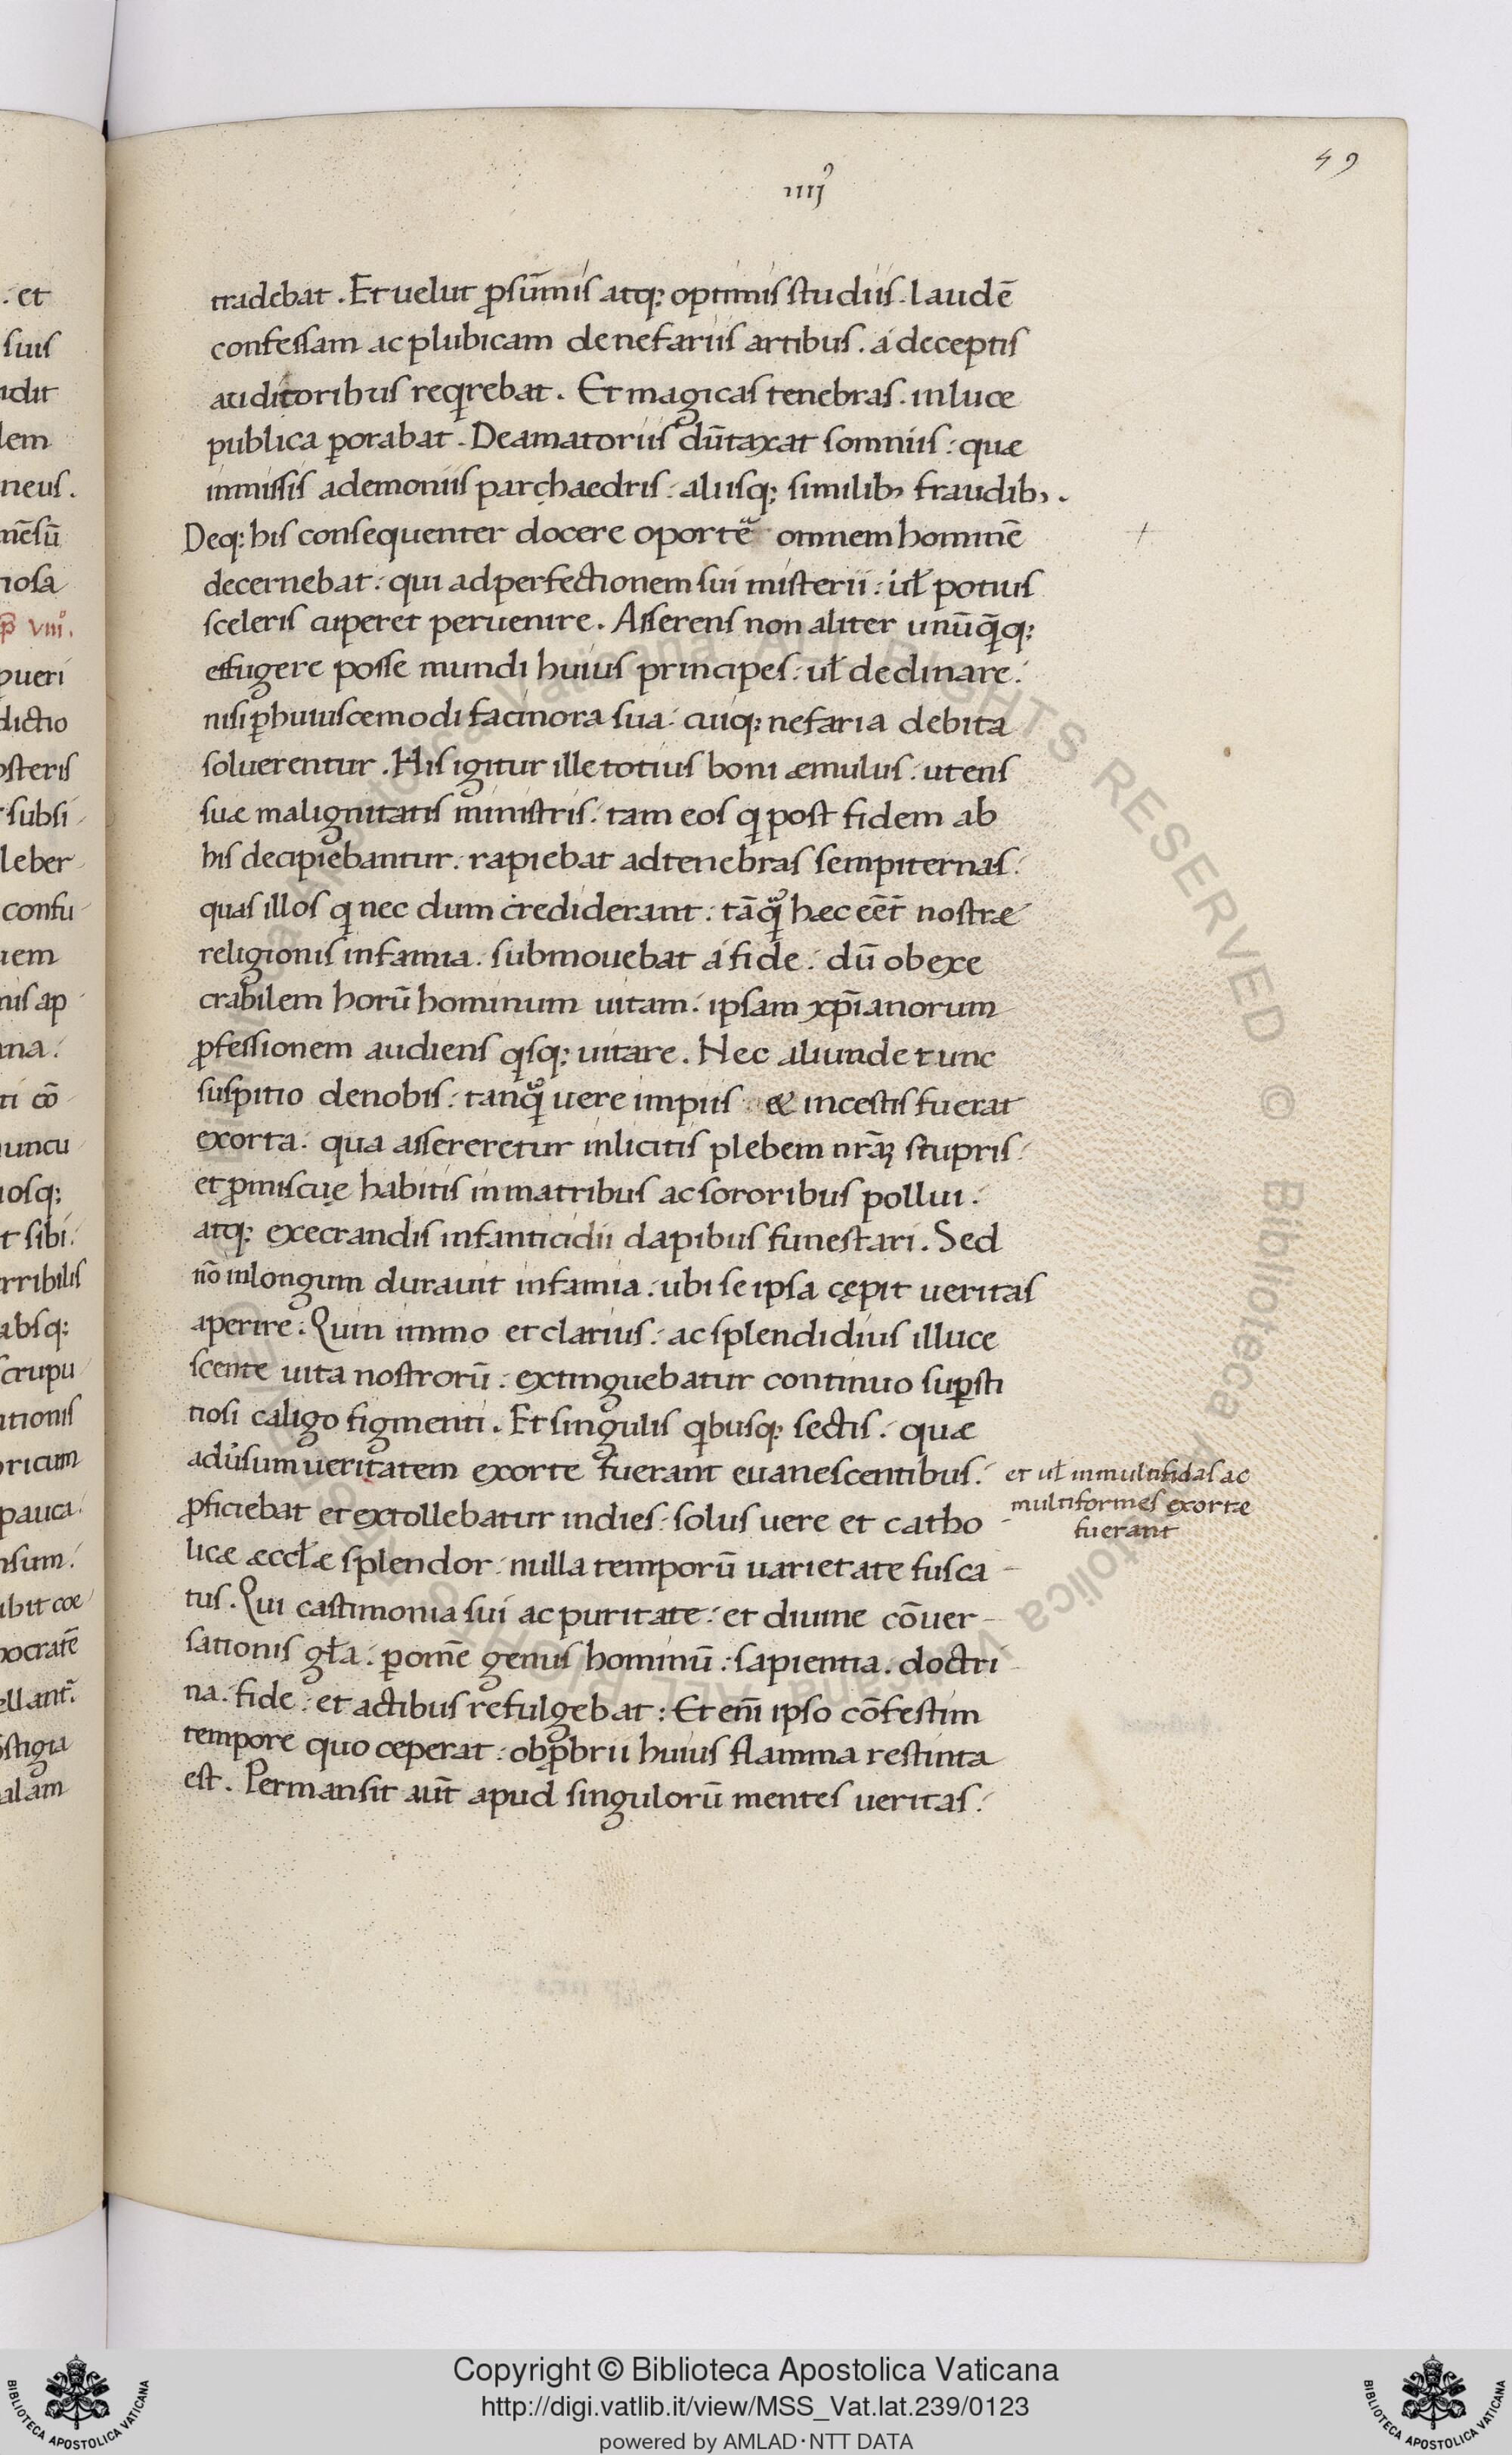 49
iiiiꝰ
tradebat . Et uelut ꝓsūmis atq; optimis studiis . laudē
confessam ac plubicam de nefariis artibus . a deceptis
auditoribus reqrebat . Et magicas tenebras . in luce
publica ꝑorabat . De amatoriis dūtaxat somniis : quæ
inmissis a demoniis parchaedris : aliisq; similibꝫ fraudibꝫ .
Deq; his consequenter docere oportē omnem hominē
decernebat : qui ad perfectionem sui misterii : uł potius
sceleris cuperet peruenire . Asserens non aliter unūq̄q;
effugere posse mundi huius principes : uł declinare :
nisi ꝑ huiuscemodi facinora sua : cuiq; nefaria debita
soluerentur . His igitur ille totius boni æmulus : utens
suæ malignitatis ministris : tam eos q post fidem ab
his decipiebantur : rapiebat ad tenebras sempiternas :
quas illos q nec dum crediderant : tāqͦ hæc eēt̄ nostræ
religionis infamia . submouebat a fide : dū ob exe
crabilem horū hominum uitam : ipsam xp̄ianorum
ꝓfessionem audiens qsq; uitare . Nec aliunde tunc
suspitio de nobis : tanqͦ uere impiis & incestis fuerat
exorta : qua assereretur inlicitis plebem nr̄aꝫ stupris :
et ꝓmiscuę habitis in matribus ac sororibus pollui :
atq; execrandis infanticidii dapibus funestari . Sed
nō in longum durauit infamia : ubi se ipsa cępit ueritas
aperire : Quin immo et clarius : ac splendidius illuce
scente uita nostrorū : extinguebatur continuo suꝑsti
tiosi caligo figmenti . Et singulis qbusq; sectis : quæ
adu̓sum ueritatem exorte fuerant euanescentibus :
ꝓficiebat et extollebatur in dies : solus uere et catho
licæ æccłæ splendor : nulla temporū uarietate fusca
tus . Qui castimonia sui ac puritate : et diuine cōuer
sationis gła : ꝑ omē genus hominū : sapientia . doctri
na . fide : et actibus refulgebat : Et eni̅ ipso cōfestim
tempore quo ceperat : obꝓbrii huius flamma restinta
est . Permansit aut̄ apud singulorū mentes ueritas :
et uł in multifidas ac
multiformes exortæ
fuerant
. et
suis
idit
lem
neus .
mēsū
nosa
p̄ viiiͦ .
pueri
dictio
osteris
subsi
leber
confu
uem
nis ap
ana :
ti cō
nuncu
iosq;
t sibi :
rribilis
absq;
scrupu
ationis
oricum
pauca :
nsum :
ibit coe
pocratē
ellant̄ :
stigia
alam
Copyright © Biblioteca Apostolica Vaticana
http://digi.vatlib.it/view/MSS_Vat.lat.239/0123
powered by AMLAD·NTT DATA
BIBLIOTECA APOSTOLICA VATICANA
BIBLIOTECA APOSTOLICA VATICANA